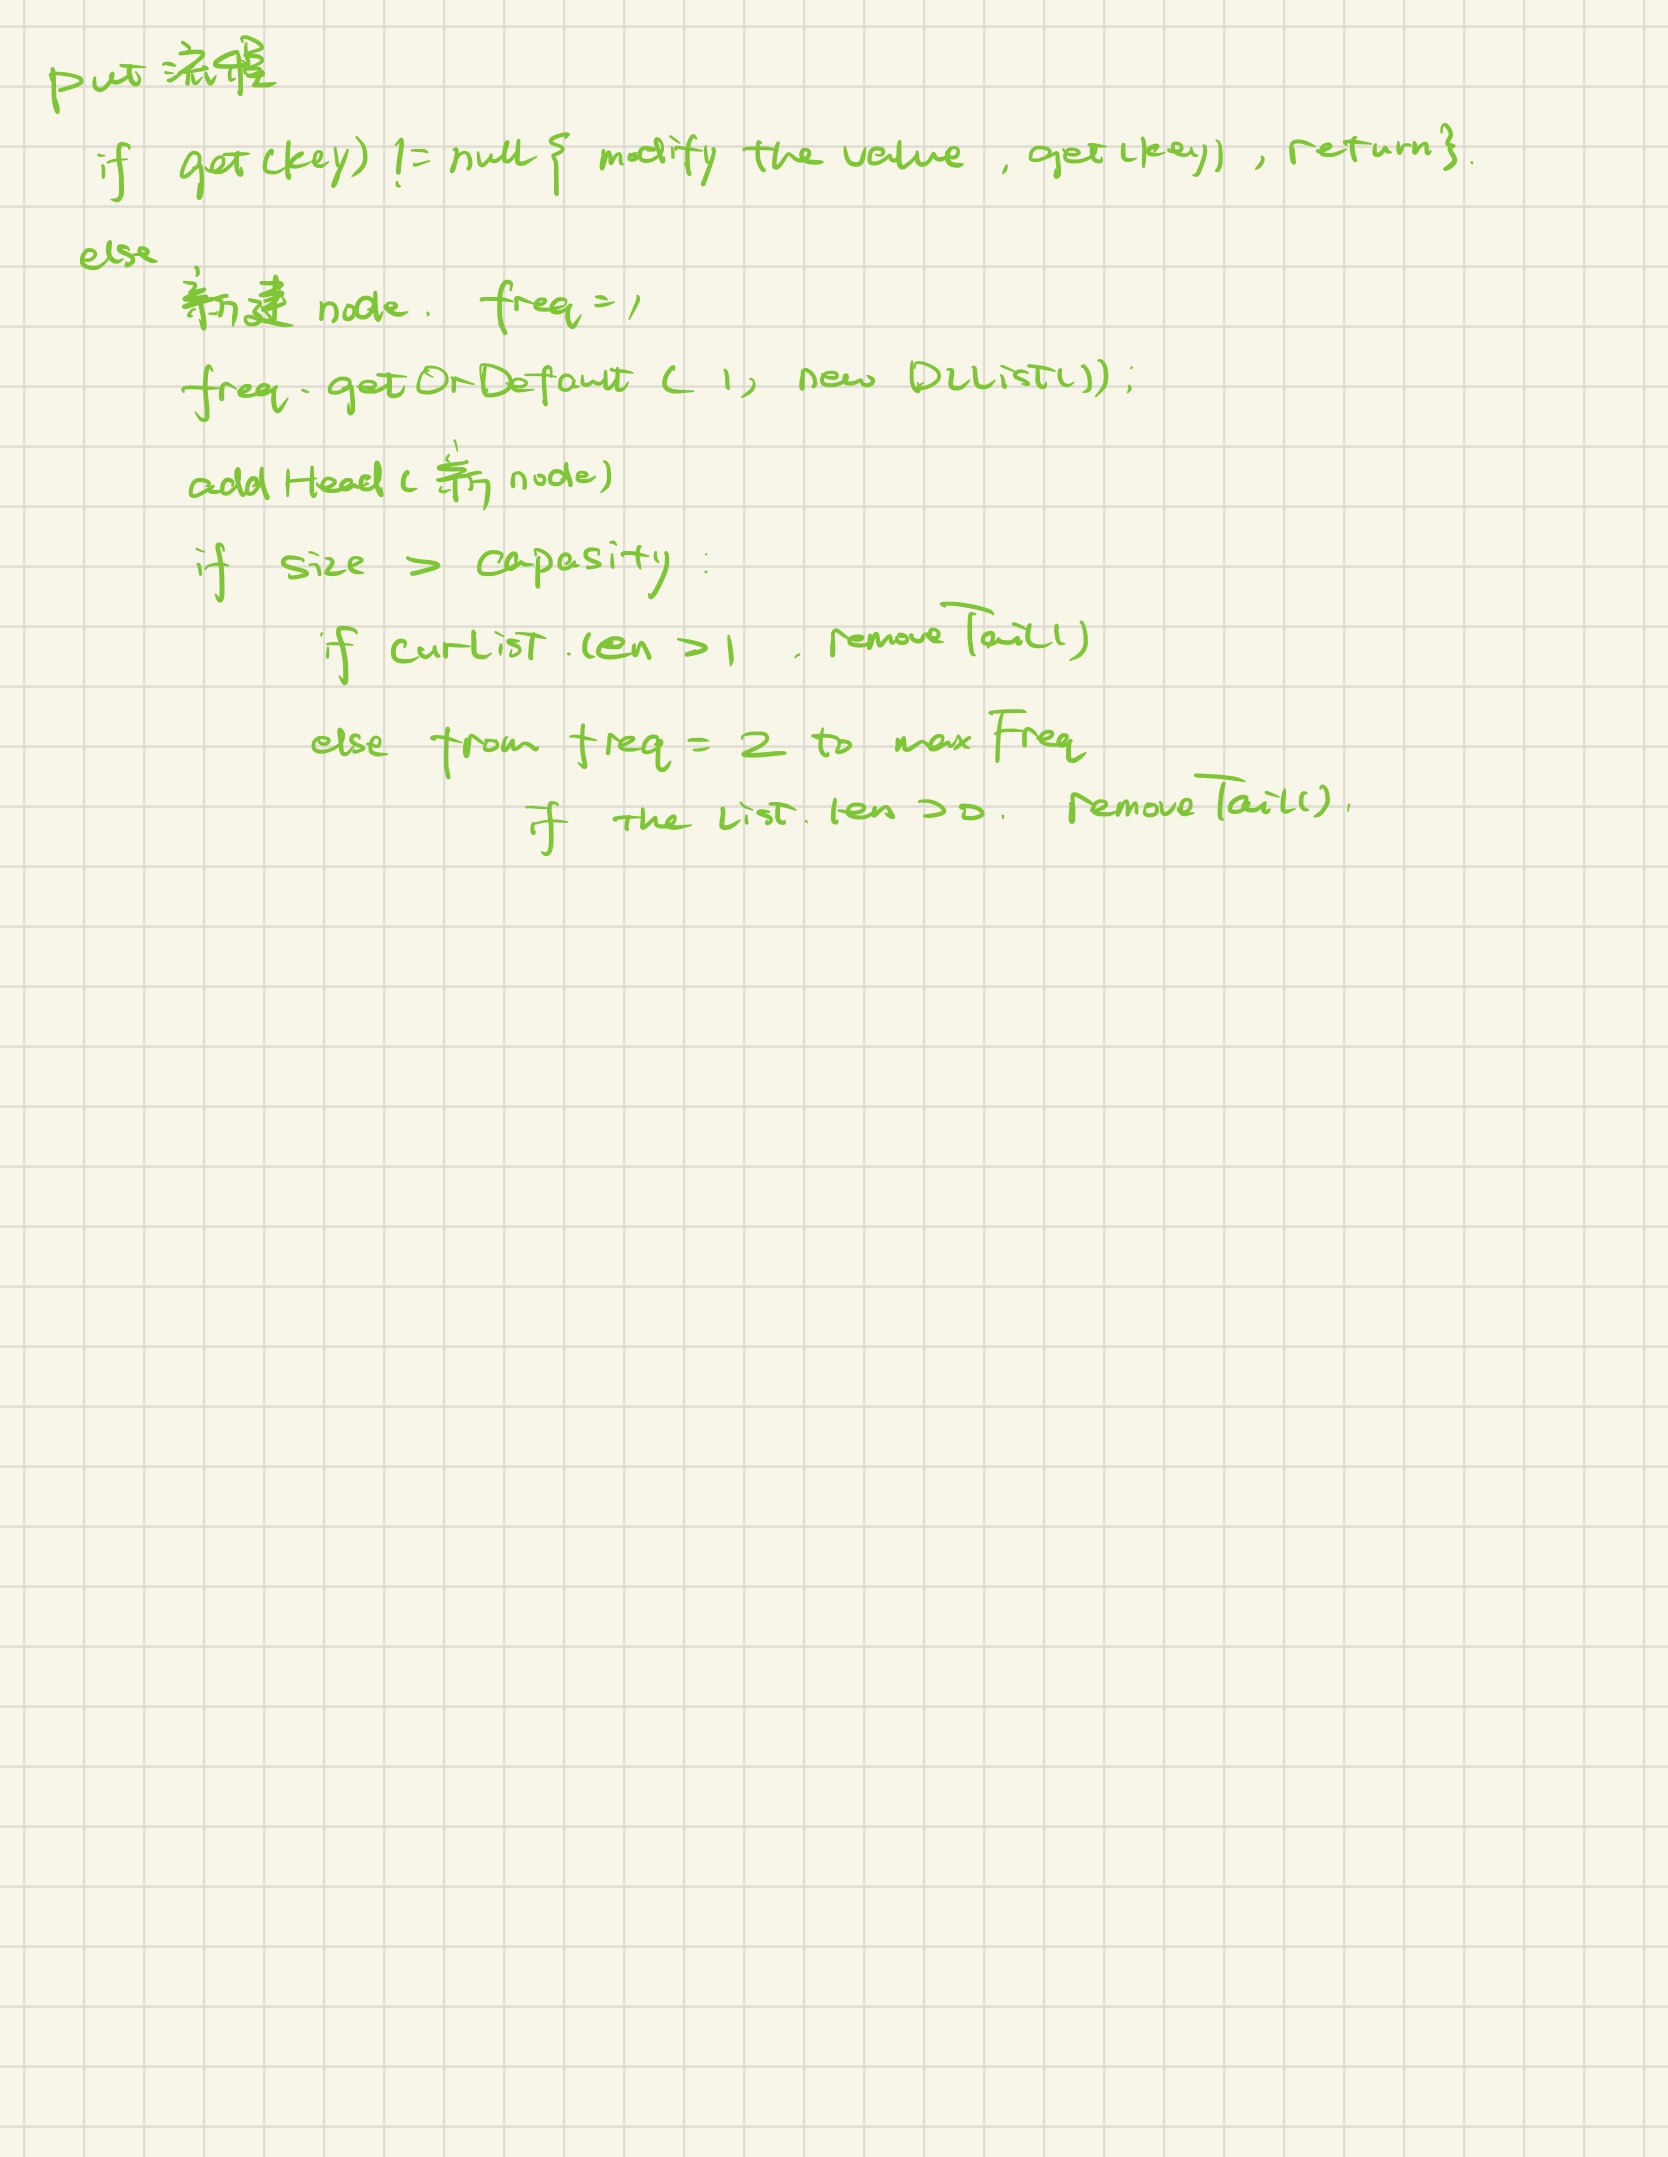 put 流程
if get(key) != null { modify the value , get(key) , return}.
else
新建 node. freq = 1
freq. getOrDefault ( 1, new DLList());
addHead ( 新 node)
if size > capasity :
if curList.len > 1 . removeTail()
else from freq = 2 to maxFreq
if the List. len > 0. removeTail().